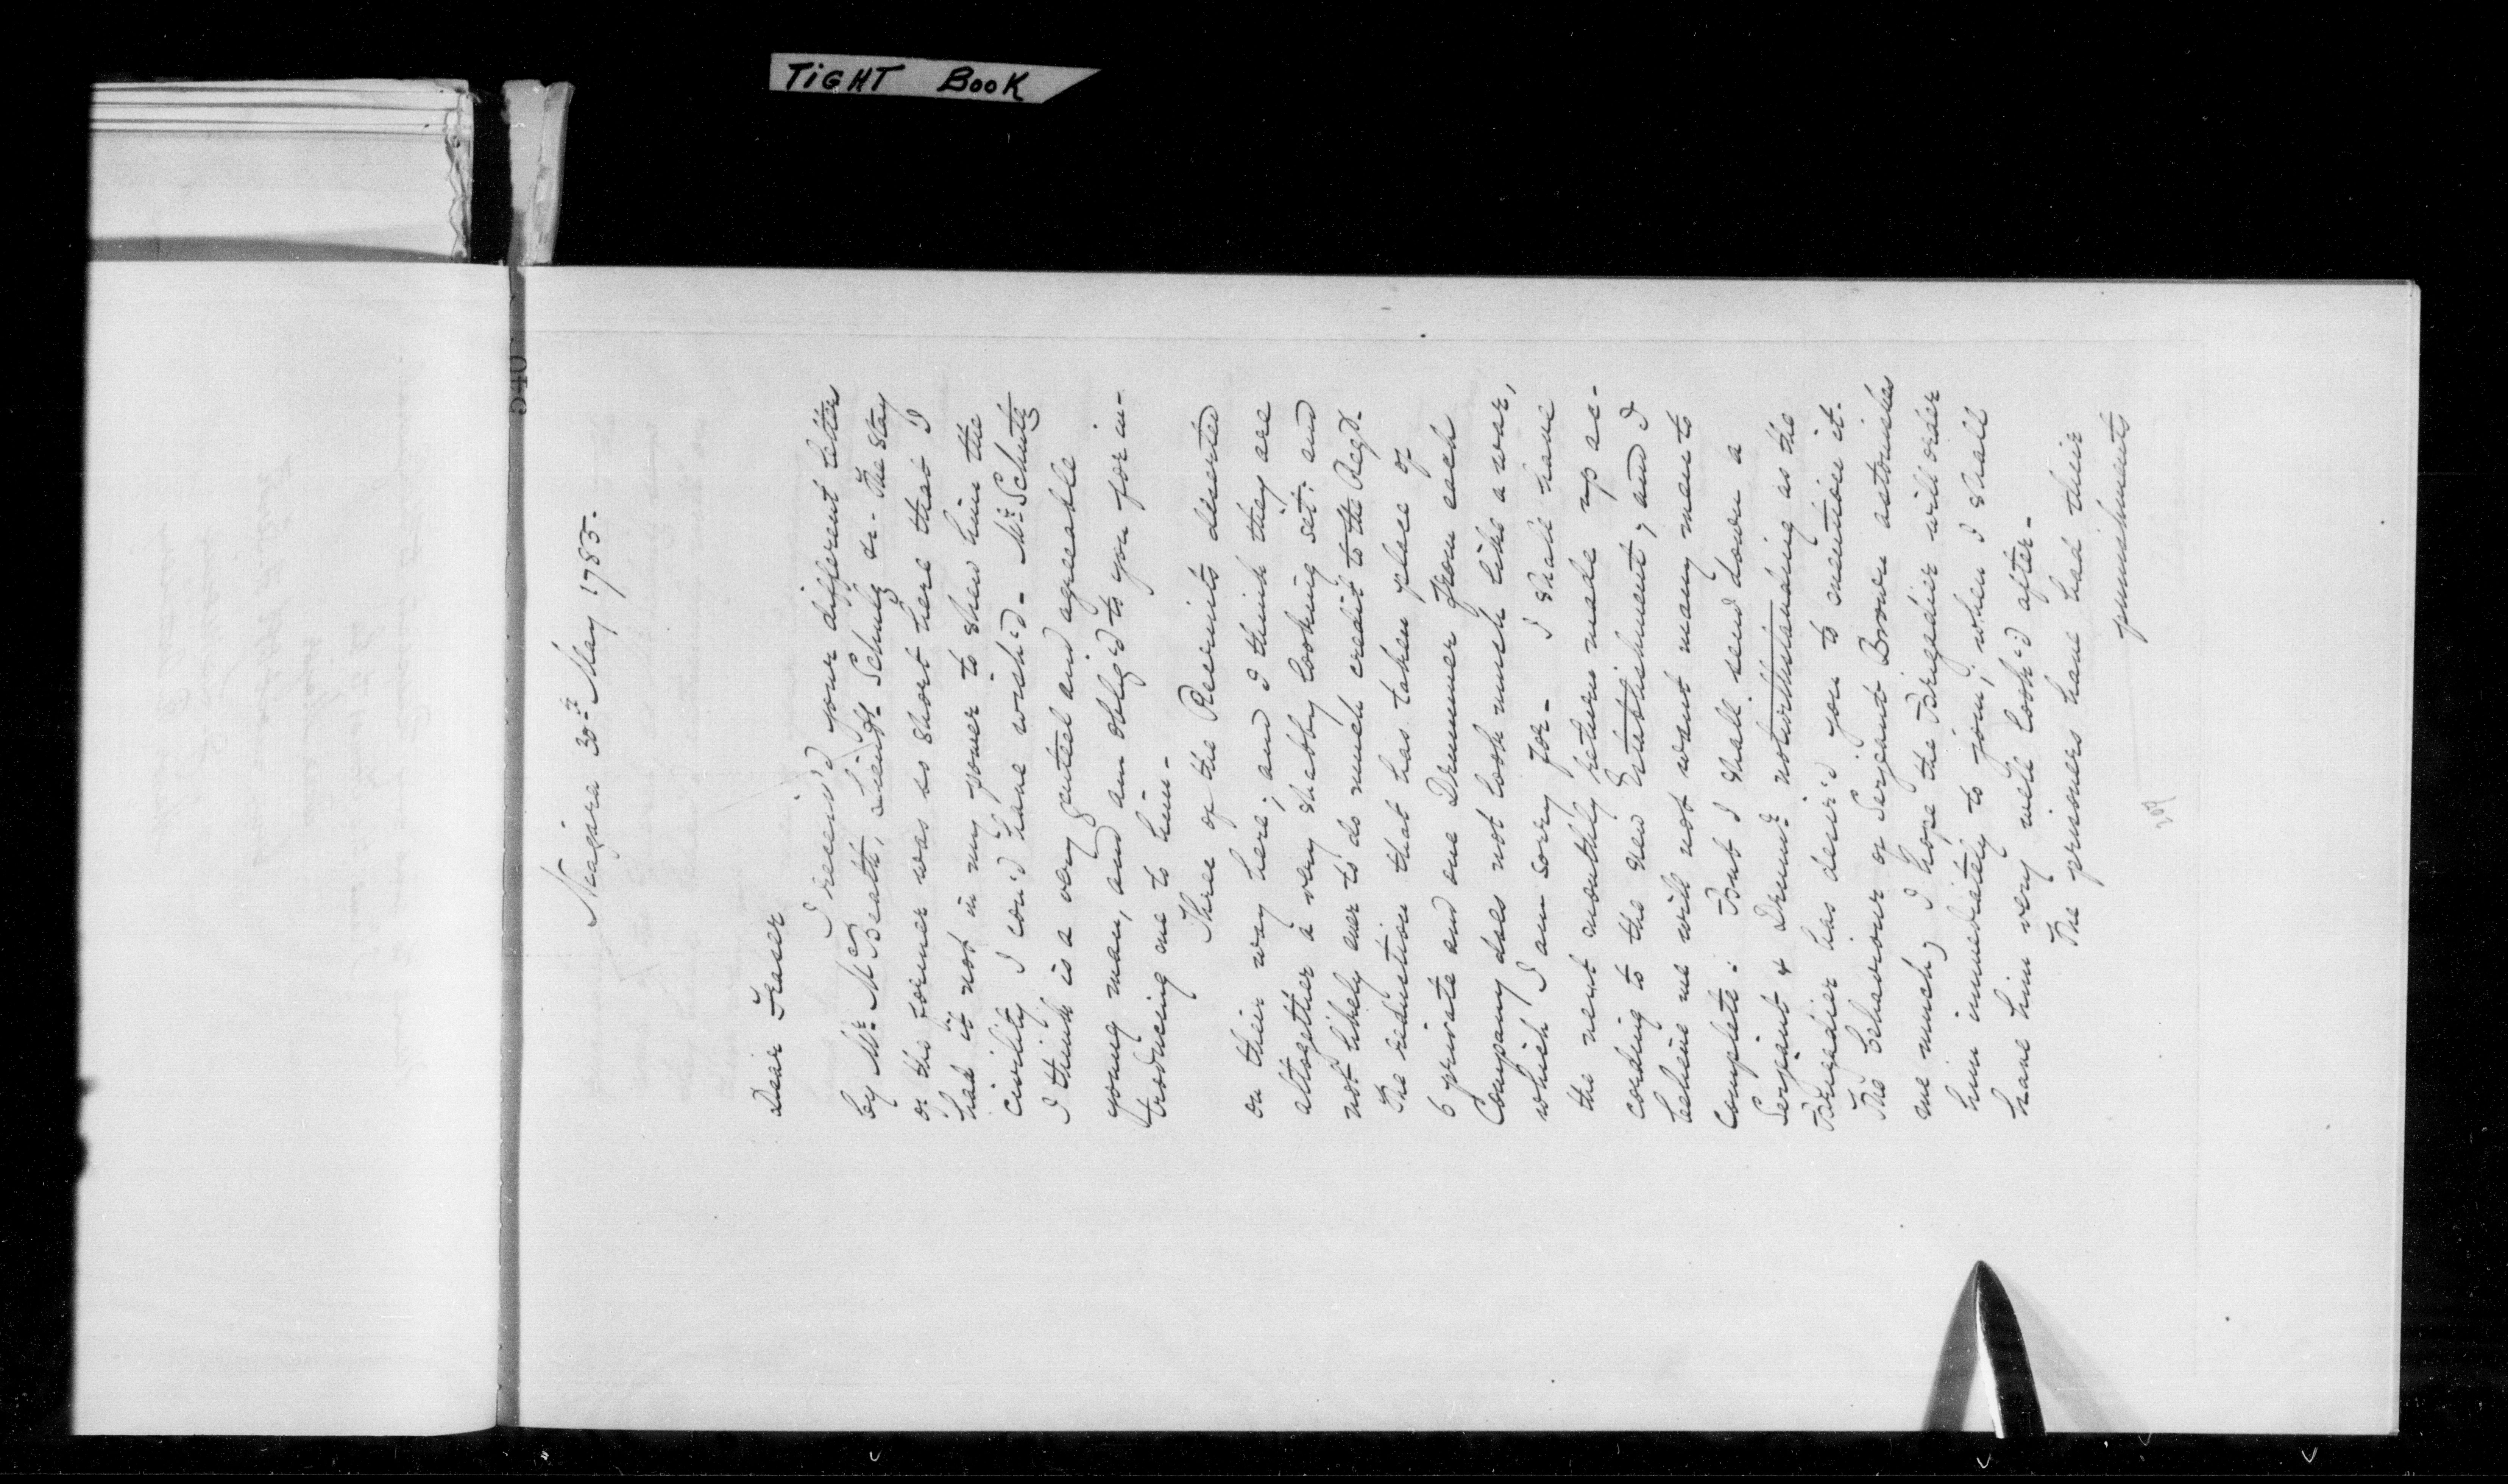 TIGHT BOOK
Niagara 30th May 1785.
Dear Fraser
I receiv'd your different letters
by Mr. McBeath, Lieut. Schultz &c. The stay
of the former was so short here that I
had it not in my power to shew him the
civility I cou'd have wish'd - Mr. Schultz
I think is a very genteel and agreeable
young man, and am oblig'd to you for in-
troducing me to him -
Three of the Recruits deserted
on their way here; and I think they are
altogether a very shabby looking set; and
not likely ever to do much credit to the Regt.
The reduction that has taken place of
6 private and one Drummer from each
Company does not look much like a war,
which I am sorry for - I shall have
the next monthly return made up ac-
cording to the new Establishment, and I
believe we will not want many men to
complete: But I shall send down a
Serjeant & Drumr. notwithstanding as the
Brigadier has desir'd you to mention it.
The behaviour of Serjeant Brown astonishes
me much; I hope the Brigadier will order
him immediately to join; when I shall
have him very well look'd after -
The prisoners have had their
punishments